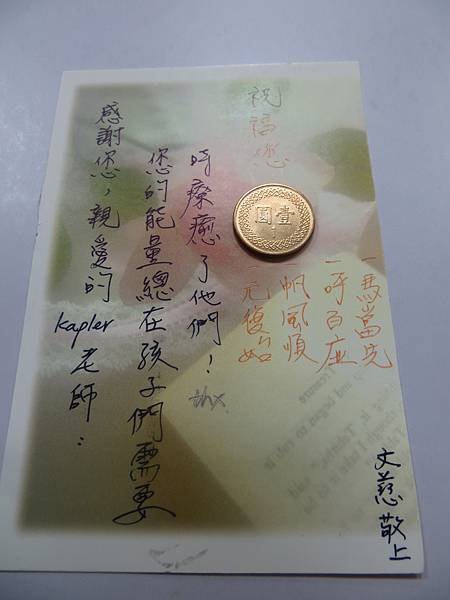 感謝您，親愛的
kapler 老師：
您的能量總在孩子們需要
時療癒了他們！
thx
祝福您
壹圓
一馬當先
一呼百应
帆風順
一元復始
文慈 敬上
Treasure
and begun to rub it